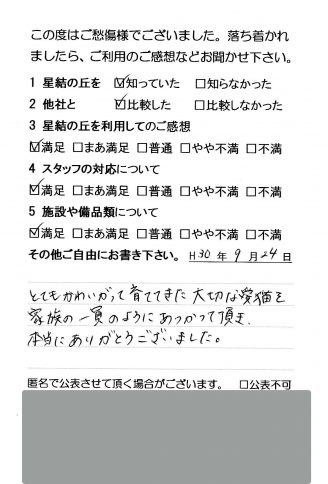 この度はご愁傷様でございました。落ち着かれ
ましたら、ご利用のご感想などお聞かせ下さい。
1 星結の丘を ☑知っていた □知らなかった
2 他社と ☑比較した □比較しなかった
3 星結の丘を利用してのご感想
☑満足 □まあ満足 □普通 □やや不満 □不満
4 スタッフの対応について
☑満足 □まあ満足 □普通 □やや不満 □不満
5 施設や備品類について
☑満足 □まあ満足 □普通 □やや不満 □不満
その他ご自由にお書き下さい。 H30年9月24日
とてもかわいがって育ててきた大切な愛猫を
家族の一員のようにあつかって頂き、
本当にありがとうございました。
匿名で公表させて頂く場合がございます。 □公表不可